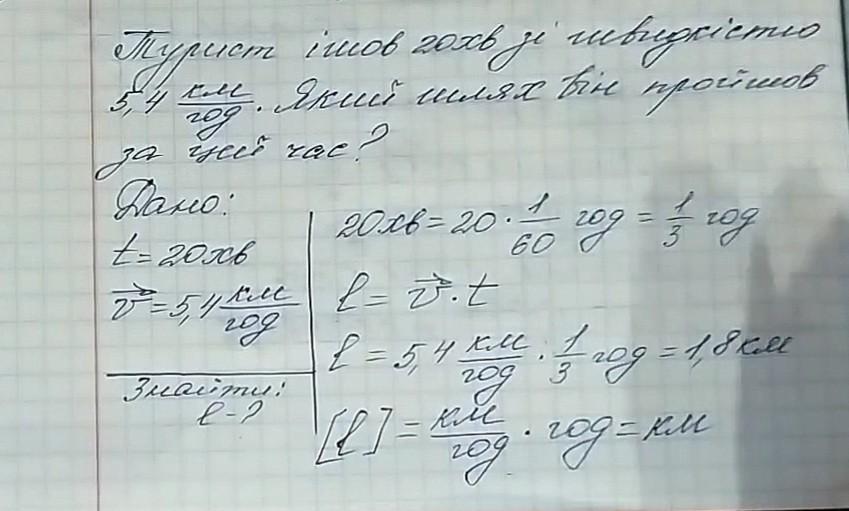 Турист ішов 20хв зі швидкістю
5,4 км/год. Який шлях він пройшов
за цей час?
Дано:
t = 20хв
v⃗ = 5,4 км/год
Знайти:
l - ?
20хв = 20 · 1/60 год = 1/3 год
l = v⃗ · t
l = 5,4 км/год · 1/3 год = 1,8 км
[l] = км/год · год = км